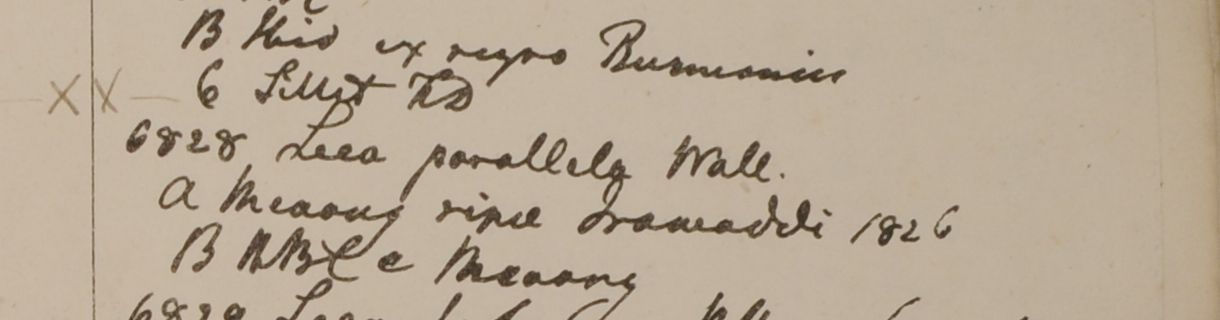 B Hid ex regno Burmanico
6 Sillet FD
6828 Leea parallela Wall.
a Meaong ripae Irawaddi 1826
B HBC e Meaong
6829 Leea